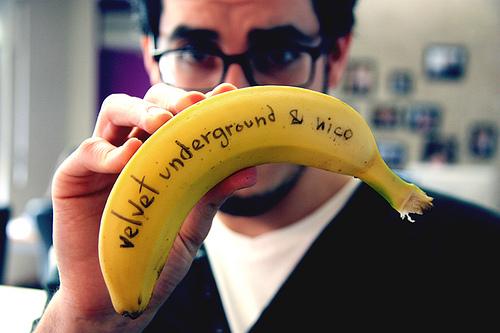 velvet underground & nico